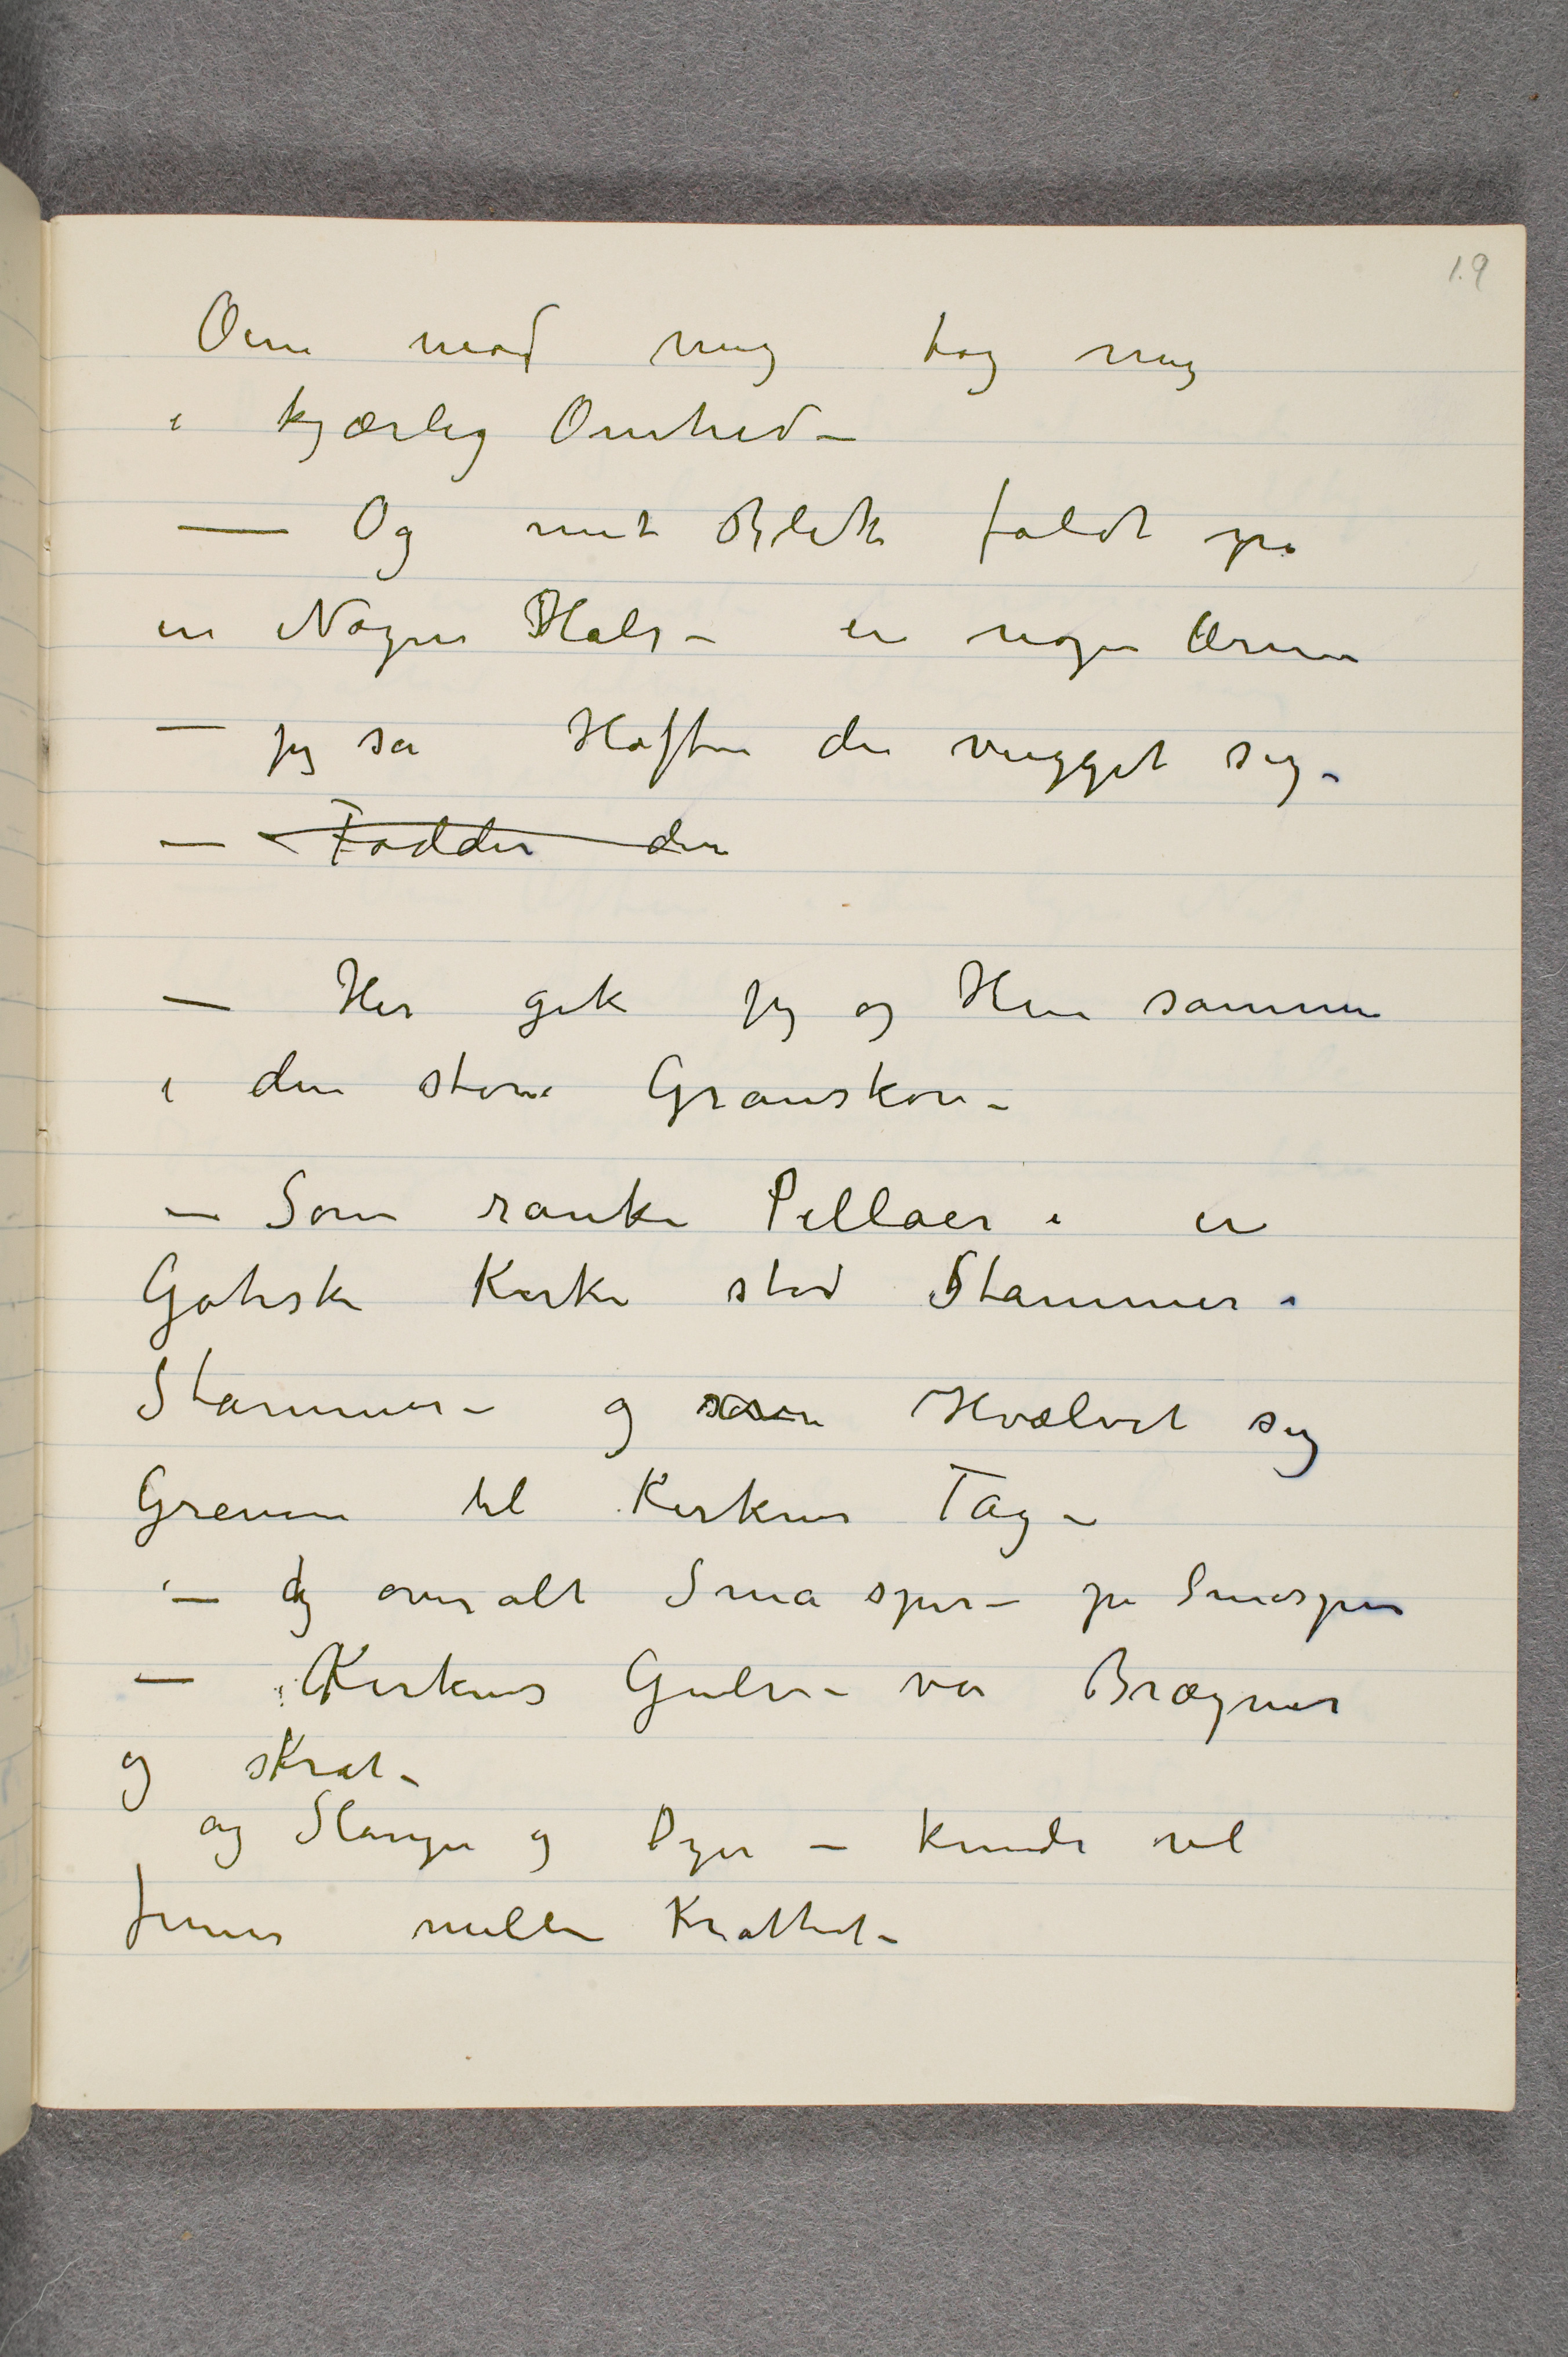 19
Øine mod mig tog mig
i kjærlig Ømhed –
— Og mit Blik faldt på
en Nøgen Hals – en nøgen Arm
— jeg så Hoften der vugget sig –
— Fødder der
— Her gik jeg og Hun sammen
i den store Granskov –
— Som ranke Pillaer i en
Gotisk Kirke stod Stammer i
Stammer – og som Hvælvet sig
Grenene til Kirkens Tag –
— og overalt Små spir – på Småspir
— Kirkens Gulv – var Brægner
og Krat –
og Slanger og Dyr – kunde vel
finnes mellem Krattet –